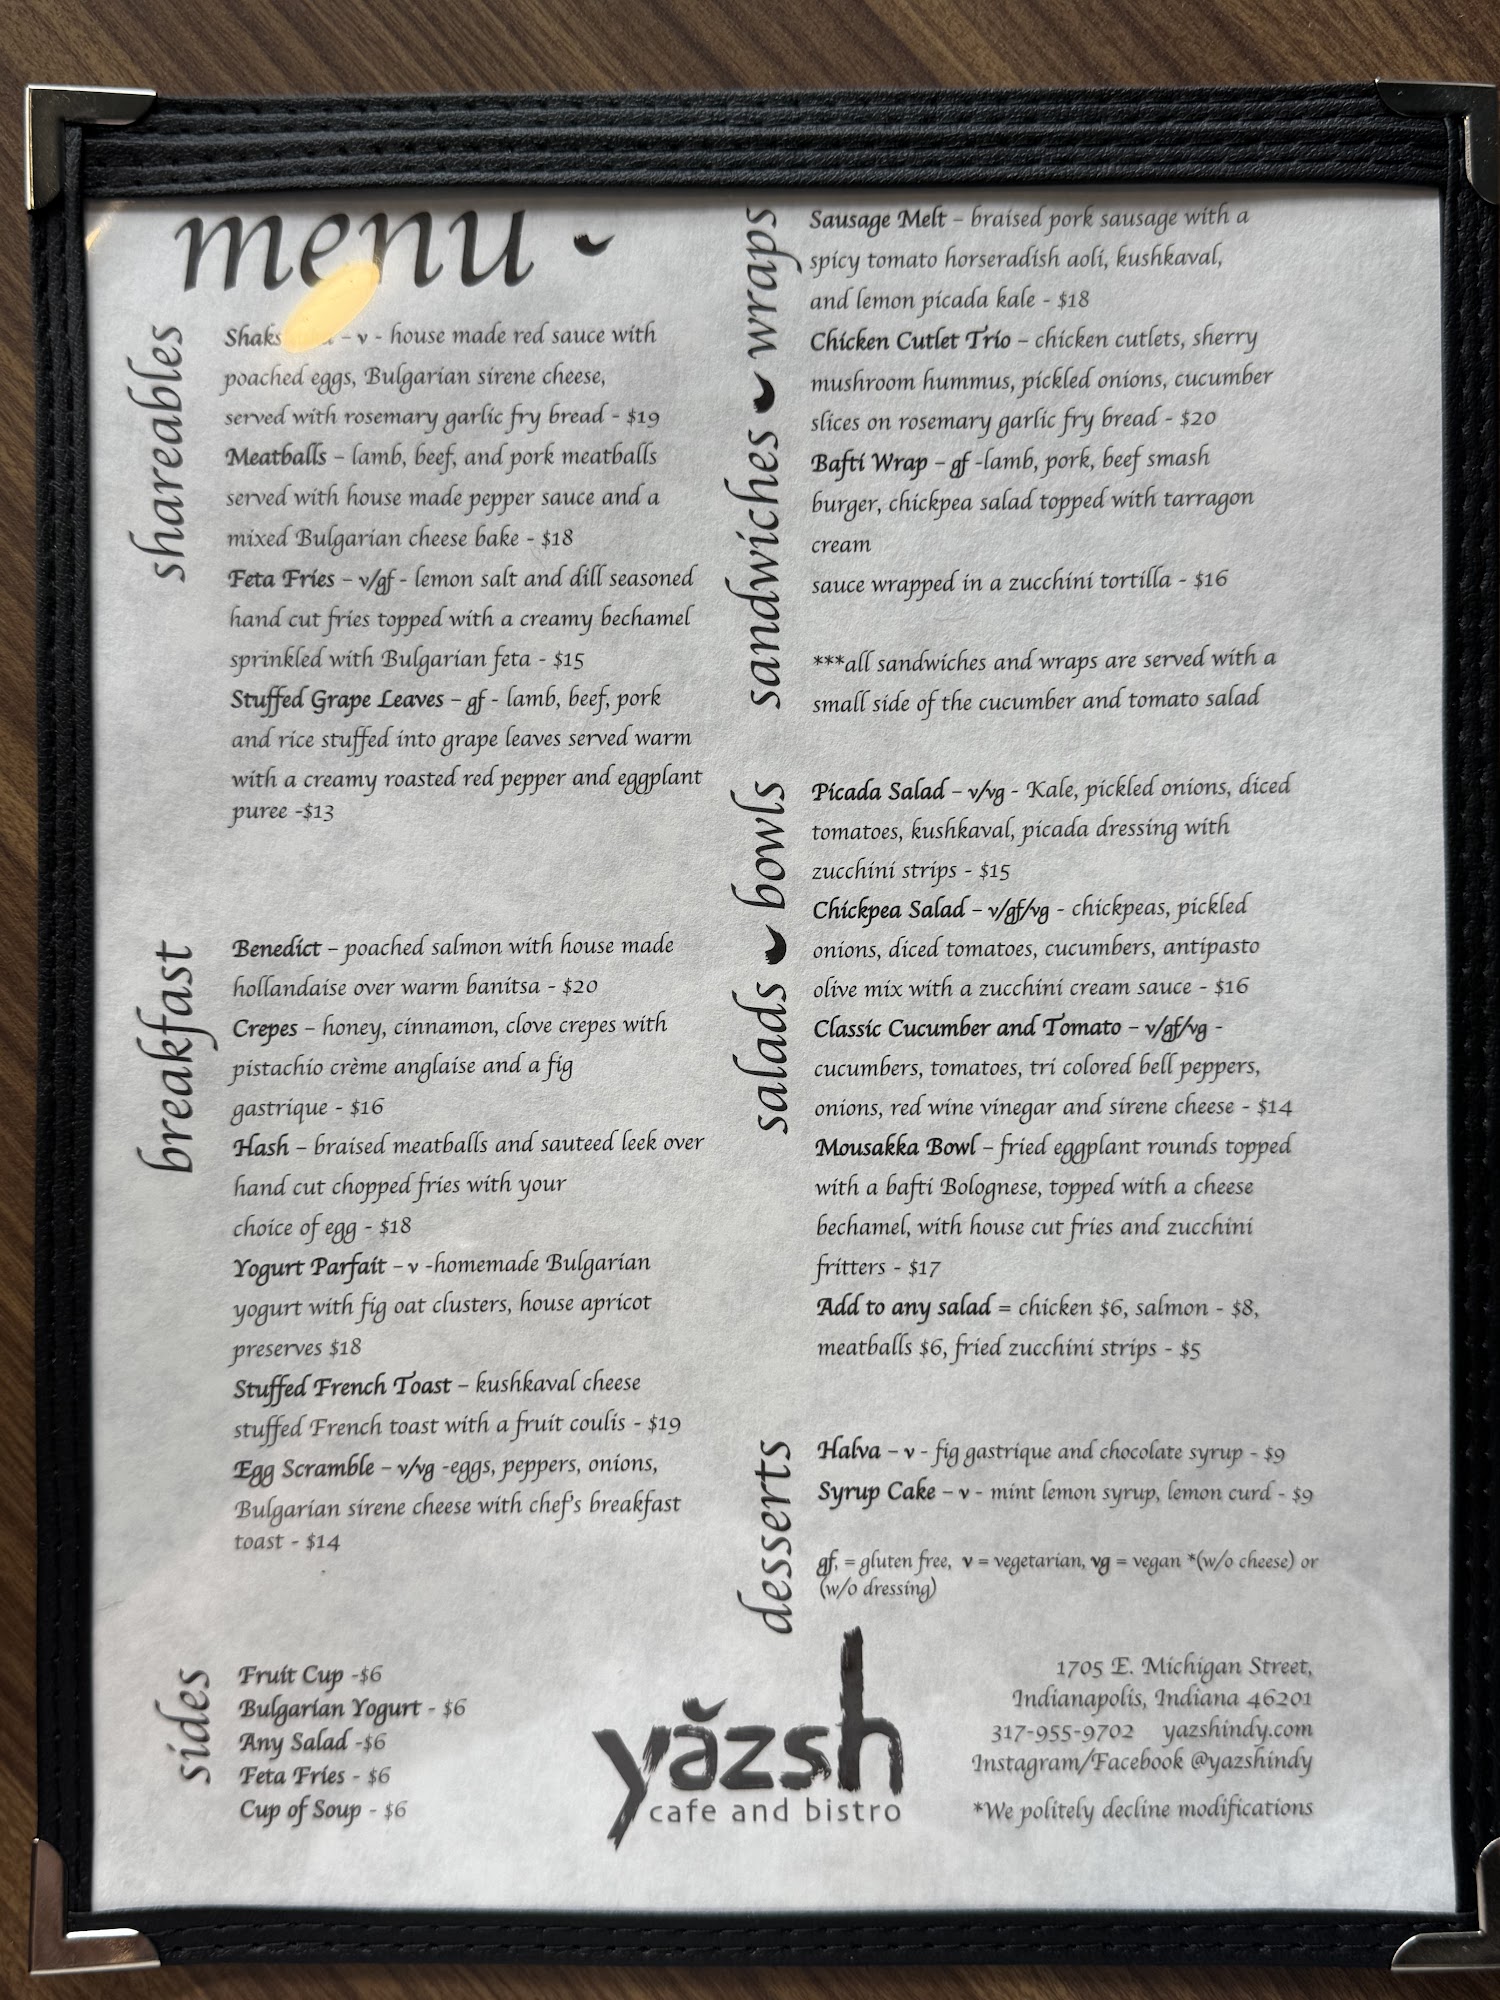 menu
shareables
Shaks - v - house made red sauce with
poached eggs, Bulgarian sirene cheese,
served with rosemary garlic fry bread - $19
Meatballs – lamb, beef, and pork meatballs
served with house made pepper sauce and a
mixed Bulgarian cheese bake - $18
Feta Fries – v/gf - lemon salt and dill seasoned
hand cut fries topped with a creamy bechamel
sprinkled with Bulgarian feta - $15
Stuffed Grape Leaves – gf - lamb, beef, pork
and rice stuffed into grape leaves served warm
with a creamy roasted red pepper and eggplant
puree -$13
breakfast
Benedict – poached salmon with house made
hollandaise over warm banitsa - $20
Crepes – honey, cinnamon, clove crepes with
pistachio crème anglaise and a fig
gastrique - $16
Hash – braised meatballs and sauteed leek over
hand cut chopped fries with your
choice of egg - $18
Yogurt Parfait – v -homemade Bulgarian
yogurt with fig oat clusters, house apricot
preserves $18
Stuffed French Toast – kushkaval cheese
stuffed French toast with a fruit coulis - $19
Egg Scramble – v/vg -eggs, peppers, onions,
Bulgarian sirene cheese with chef's breakfast
toast - $14
sides
Fruit Cup -$6
Bulgarian Yogurt - $6
Any Salad -$6
Feta Fries - $6
Cup of Soup - $6
sandwiches wraps
Sausage Melt – braised pork sausage with a
spicy tomato horseradish aoli, kushkaval,
and lemon picada kale - $18
Chicken Cutlet Trio – chicken cutlets, sherry
mushroom hummus, pickled onions, cucumber
slices on rosemary garlic fry bread - $20
Bafti Wrap – gf -lamb, pork, beef smash
burger, chickpea salad topped with tarragon
cream
sauce wrapped in a zucchini tortilla - $16
***all sandwiches and wraps are served with a
small side of the cucumber and tomato salad
salads bowls
Picada Salad – v/vg - Kale, pickled onions, diced
tomatoes, kushkaval, picada dressing with
zucchini strips - $15
Chickpea Salad – v/gf/vg - chickpeas, pickled
onions, diced tomatoes, cucumbers, antipasto
olive mix with a zucchini cream sauce - $16
Classic Cucumber and Tomato – v/gf/vg -
cucumbers, tomatoes, tri colored bell peppers,
onions, red wine vinegar and sirene cheese - $14
Mousakka Bowl – fried eggplant rounds topped
with a bafti Bolognese, topped with a cheese
bechamel, with house cut fries and zucchini
fritters - $17
Add to any salad = chicken $6, salmon - $8,
meatballs $6, fried zucchini strips - $5
desserts
Halva – v - fig gastrique and chocolate syrup - $9
Syrup Cake – v - mint lemon syrup, lemon curd - $9
gf, = gluten free, v = vegetarian, vg = vegan *(w/o cheese) or
(w/o dressing)
yăzsh
cafe and bistro
1705 E. Michigan Street,
Indianapolis, Indiana 46201
317-955-9702 yazshindy.com
Instagram/Facebook @yazshindy
*We politely decline modifications